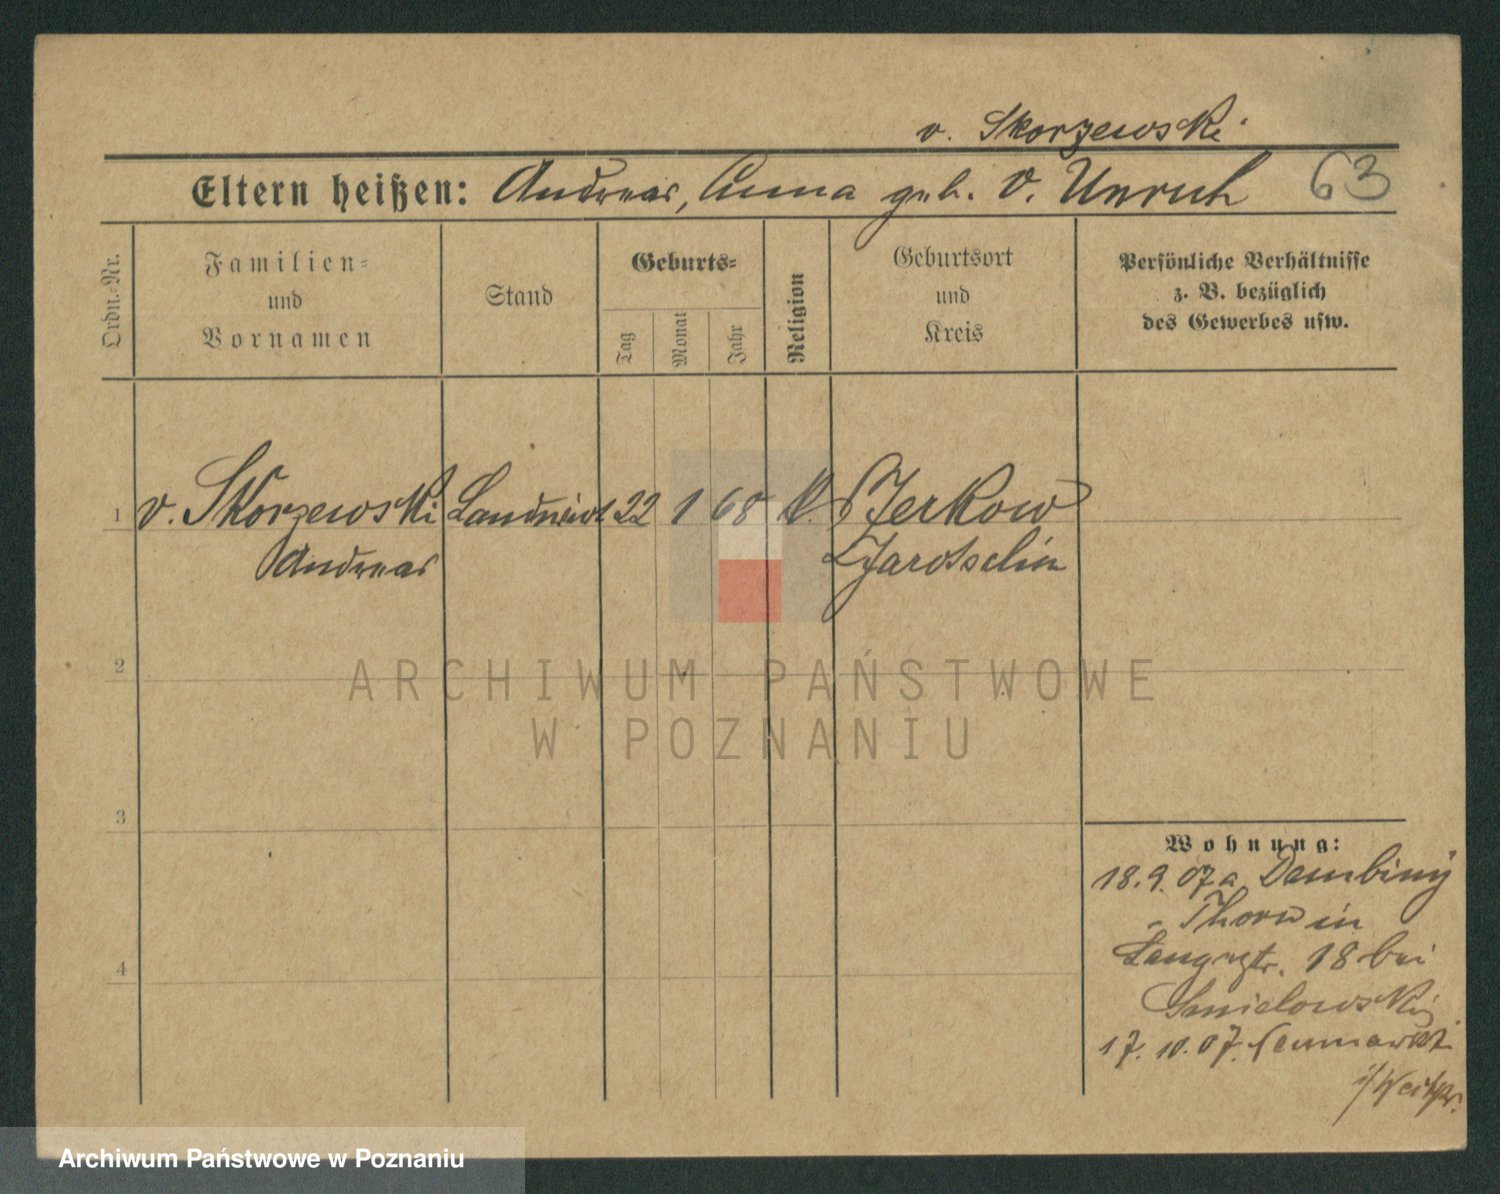 v. Skorzewski
Eltern heißen: Andreas, Anna geb. v. Unruh 63
Ordn.-Nr.
Familien-
und
Vornamen
Stand
Geburts-
Tag
Monat
Jahr
Religion
Geburtsort
und
Kreis
Persönliche Verhältnisse
z. B. bezüglich
des Gewerbes usw.
1 v. Skorzewski Landwirt 22 1 68 k. Zerkow
Andreas Jarotschin
2
3
4
Wohnung:
18.9.07 a Dembiny
Thorn in
Langestr. 18 bei
17.10.07. Neumarkt
i/Westpr.
ARCHIWUM PAŃSTWOWE
W POZNANIU
Archiwum Państwowe w Poznaniu